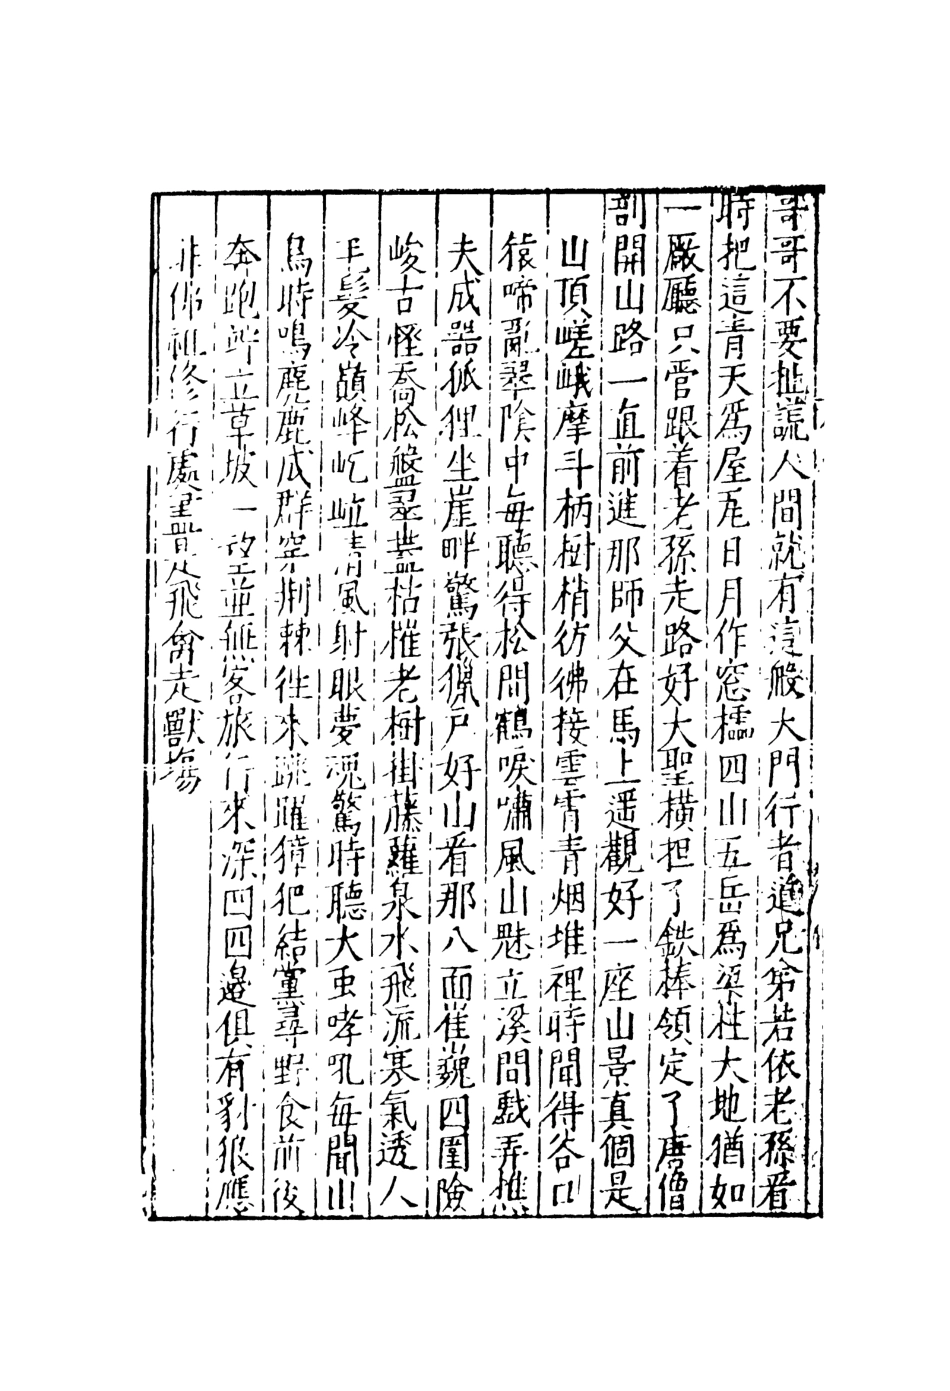 哥哥不要扯謊人間就有這般大門行者道兄弟若依老孫看
時把這青天爲屋瓦日月作窓櫺四山五岳爲梁柱大地猶如
一廠廳只管跟着老孫走路好大聖橫担了鉄棒領定了唐僧
剖開山路一直前進那師父在馬上遥觀好一座山景真個是
山頂嵯峨摩斗柄樹梢彷彿接雲霄青烟堆裡時聞得谷口
猿啼亂翠陰中每聽得松間鶴唳嘯風山魅立溪間戲弄樵
夫成器狐狸坐崖畔驚張獵户好山看那八面崔巍四圍險
峻古怪喬松盤翠蓋枯摧老樹掛藤蘿泉水飛流寒氣透人
毛髮冷巔峰屹岦清風射眼夢魂驚時聽大虫哮吼每聞山
鳥時鳴麂鹿成群穿荆棘往來跳躍獐犯結黨尋野食前後
奔跑竚立草坡一望並無客旅行來深凹四邉俱有豺狼應
非佛祖修行處盡是飛禽走獸塲